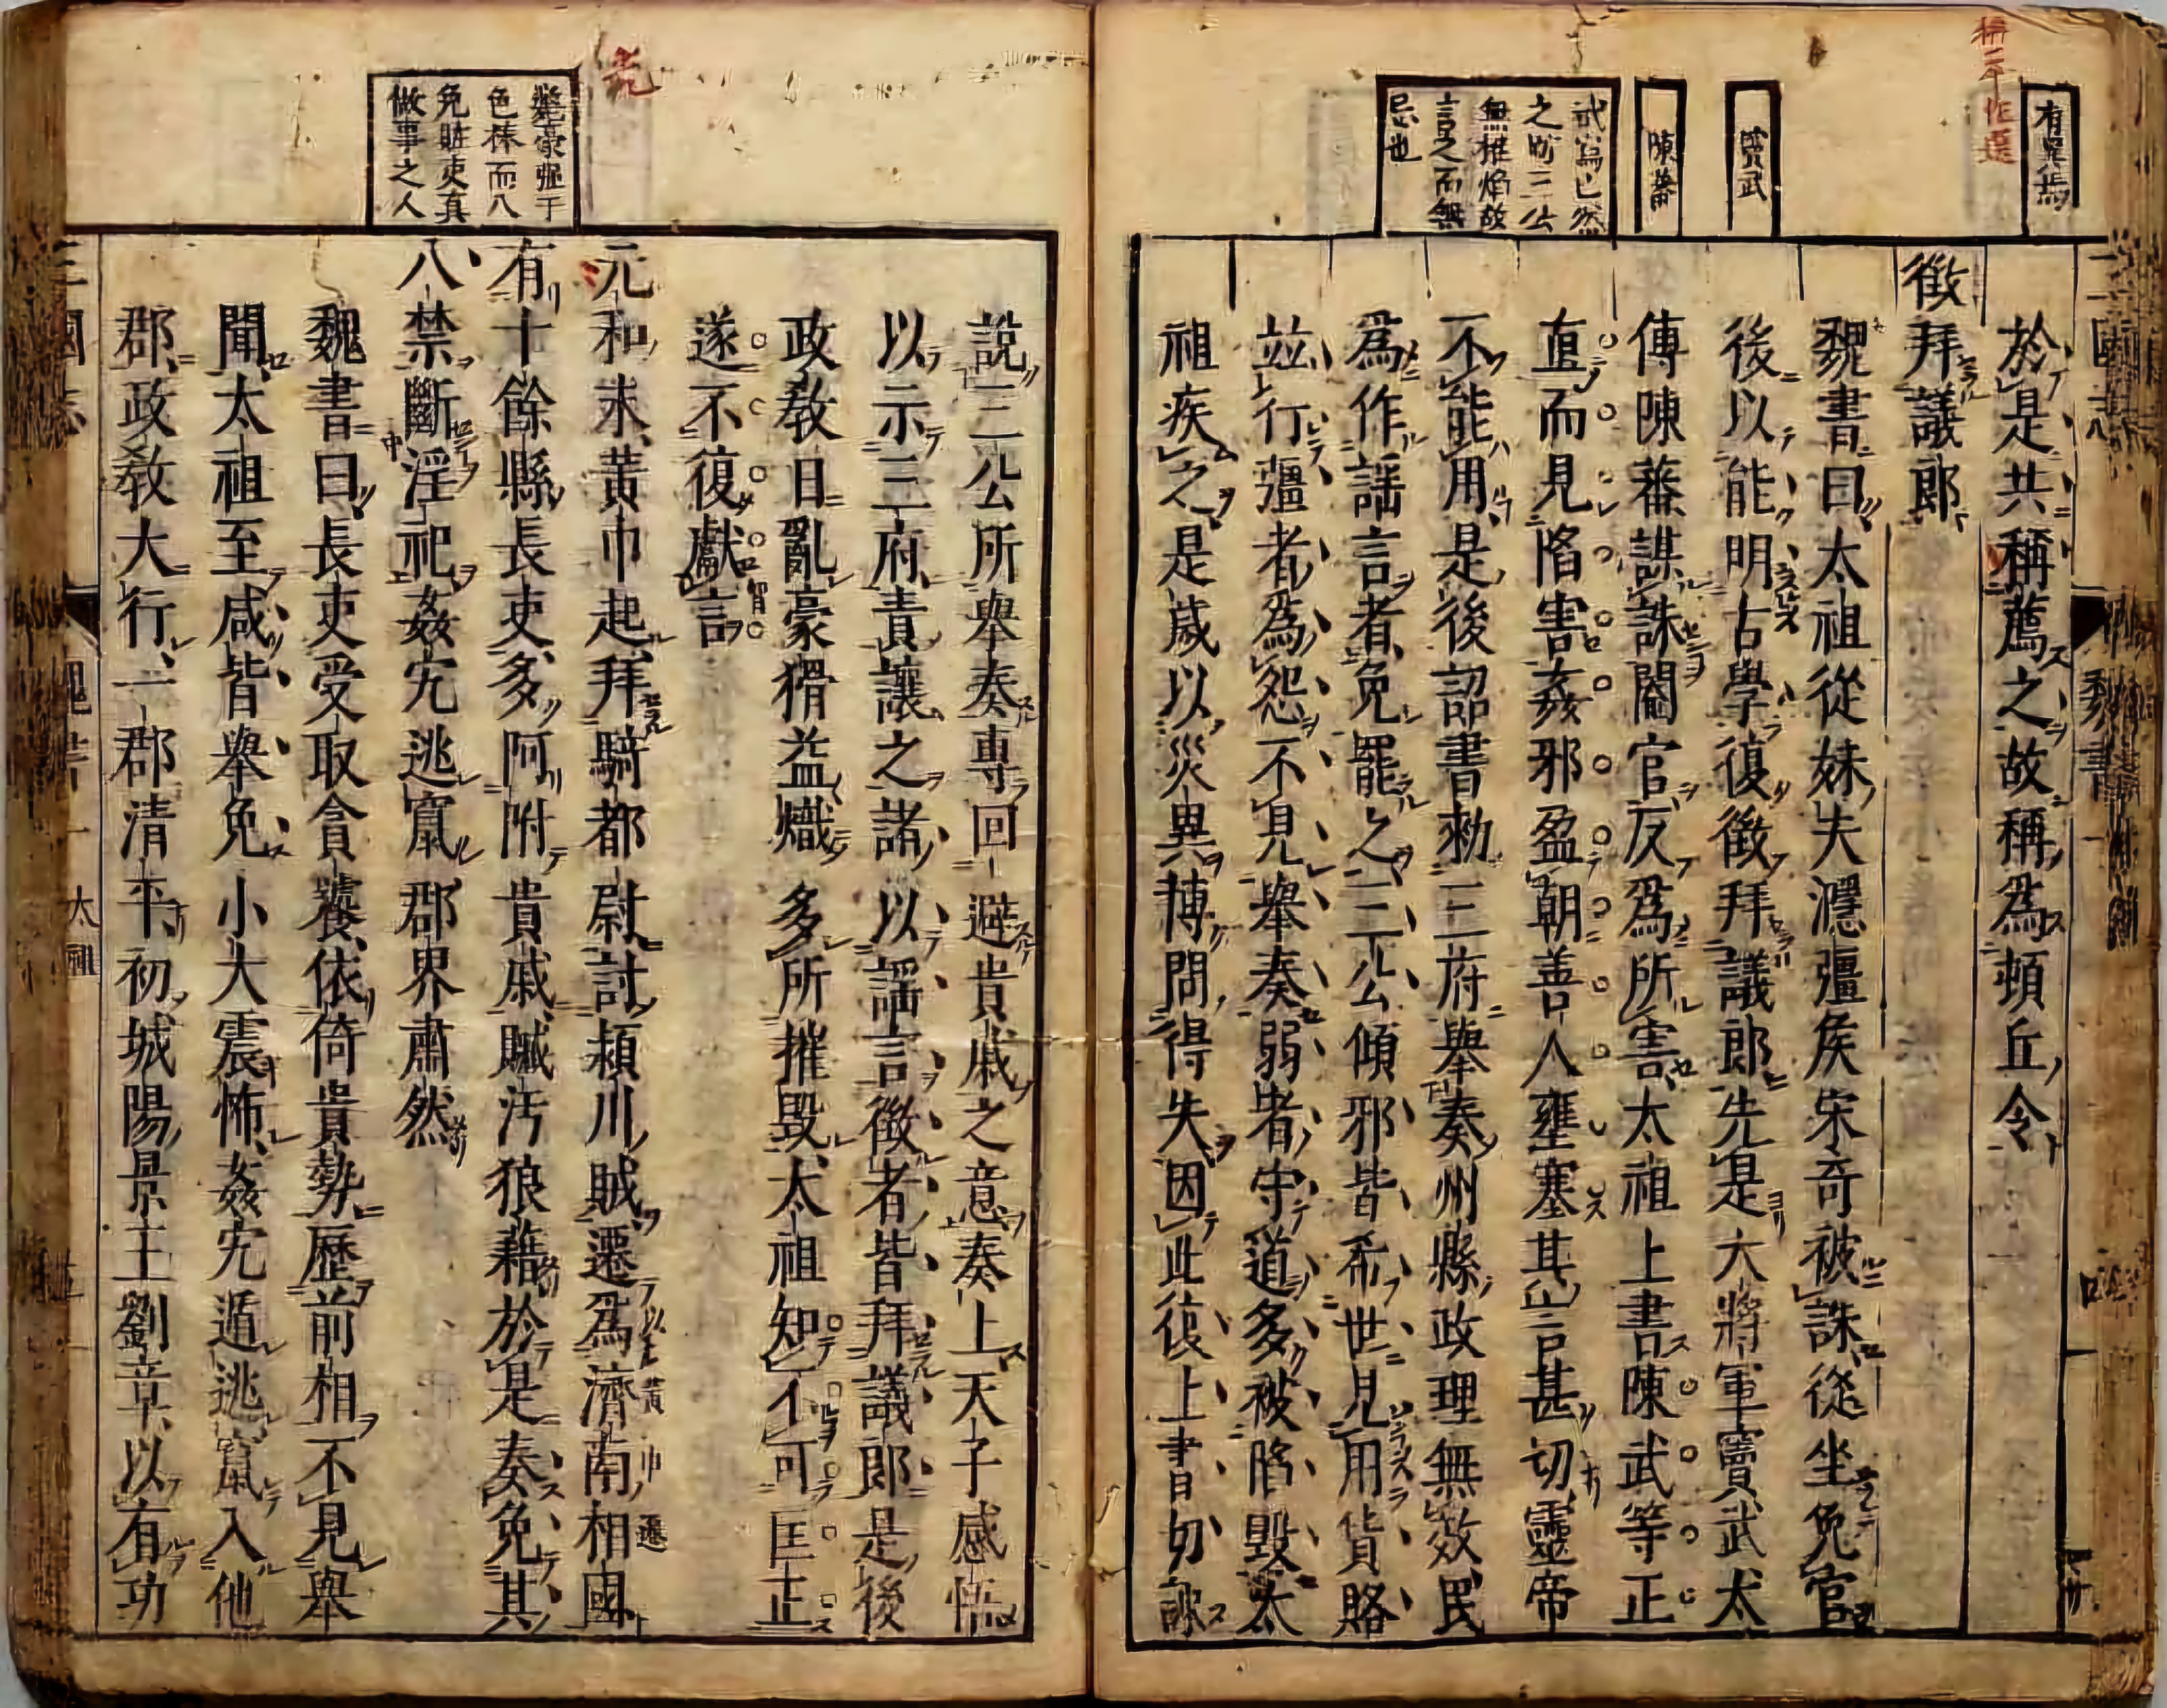 有異焉
竇武
陳蕃
武篇已然
之時三公
無權焰故
言之而無
忌也
於是共稱薦之故稱爲頓丘令
徵拜議郎
魏書曰太祖從妹夫㶏彊侯宋奇被誅從坐免官
後以能明古學復徵拜議郎先是大將軍竇武太
傅陳蕃謀誅閹官反爲所害太祖上書陳武等正
直而見陷害姦邪盈朝善人壅塞其言甚切靈帝
不能用是後詔書勑三府舉奏州縣政理無效民
爲作謡言者免罷之三公傾邪皆希世見用貨賂
並行彊者爲怨不見舉奏弱者守道多被陷毀太
祖疾之是歲以災異博問得失因此復上書切諫
說三公所舉奏專回避貴戚之意奏上天子感悟
以示三府責讓之諸以謡言徵者皆拜議郎是後
政教日亂豪猾益熾多所摧毀太祖知不可匡正
遂不復獻言
元和末黃巾起拜騎都尉討潁川賊遷爲濟南相國
有十餘縣長吏多阿附貴戚贓汚狼藉於是奏免其
八禁斷淫祀姦宄逃竄郡界肅然
魏書曰長吏受取貪饕依倚貴勢歷前相不見舉
聞太祖至咸皆舉免小大震怖姦宄遁逃竄入他
郡政教大行一郡清平初城陽景王劉章以有功
色棒而八
免賍吏真
做事之人
魏書
太祖